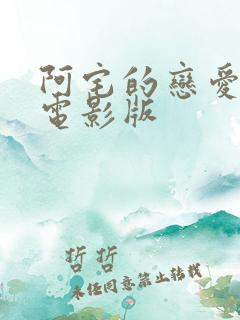 阿宅的戀愛
電影版
哲哲
未經同意禁止轉載